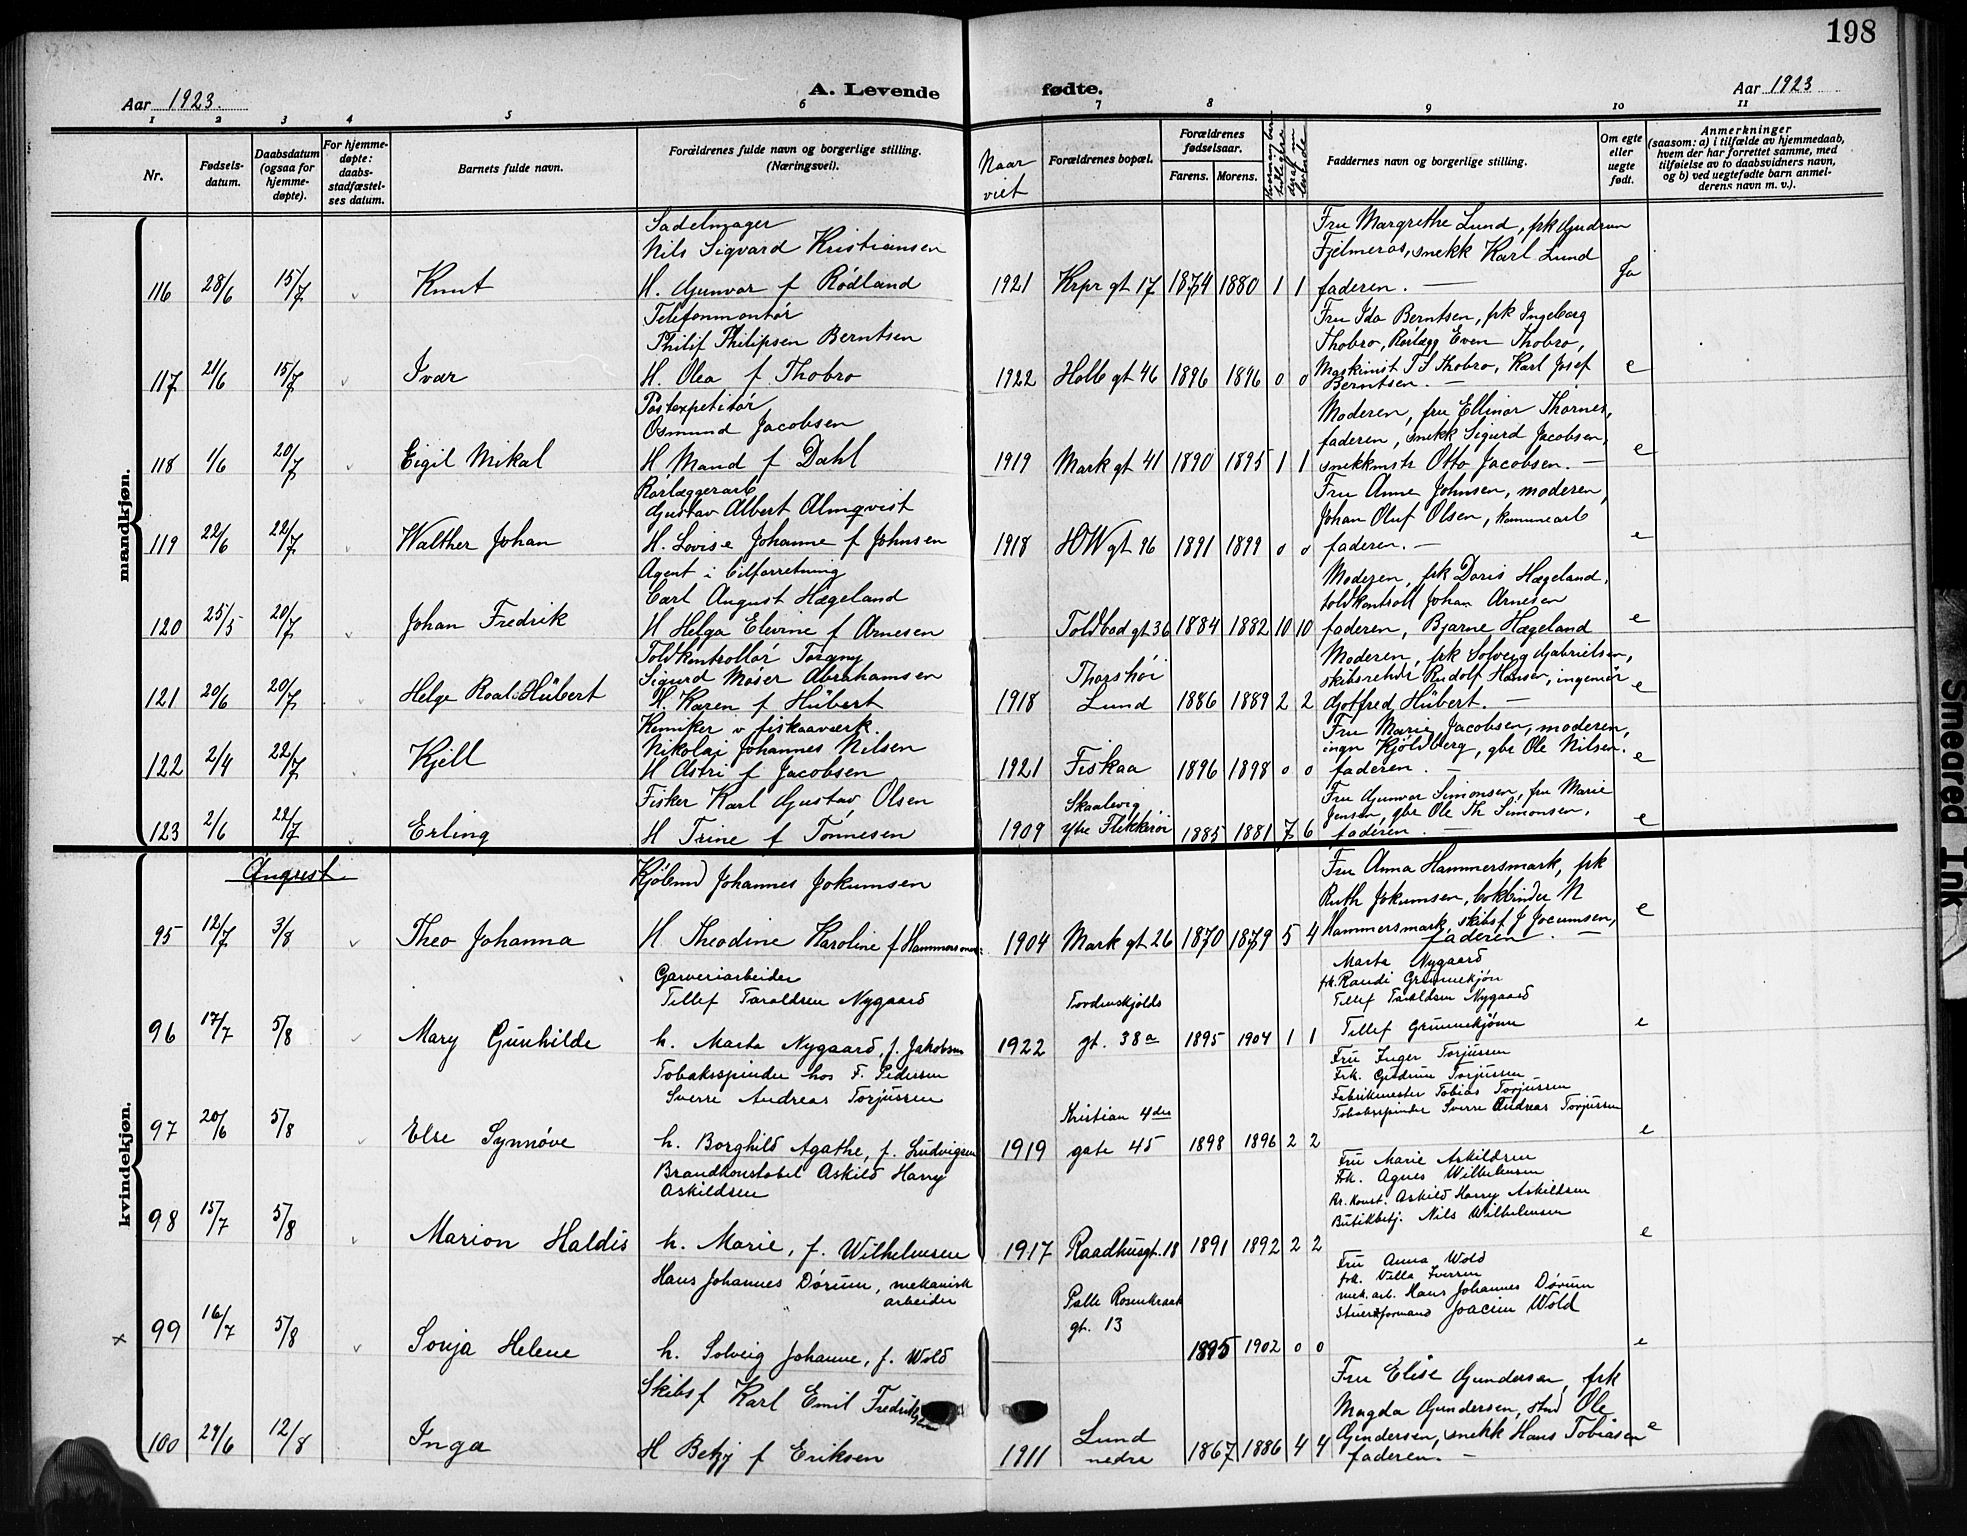 198
Aar 1923.
A. Levende
fødte.
Aar 1923
1 2 3 4 5 6 7 8 9 10 11
Nr.
Fødsels-
datum.
Daabsdatum
(ogsaa for
hjemme-
døpte).
For hjemme-
døpte:
daabs-
stadfæstel-
ses datum.
Barnets fulde navn.
Forældrenes fulde navn og borgerlige stilling.
(Næringsvei).
Naar
viet
Forældrenes bopæl.
Forældrenes
fødselsaar.
Farens. Morens.
Faddernes navn og borgerlige stilling.
Om egte
eller
uegte
født.
Anmerkninger
(saasom: a) i tilfælde av hjemmedaab,
hvem der har forrettet samme, med
tilføielse av to daabsvidners navn,
og b) ved uegtefødte barn anmel-
derens navn m. v.).
mandkjøn.
Sadelmager
Nils Sigvard Kristiansen
116 28/6 15/7 Knut H. Gunvor f Rødland 1921 Krpr gt 17 1874 1880 1 1
Fru Margrethe Lund, frk Gudrun
Fjelmeros, snekk Karl Lund
faderen. —
Telefonmontør
Philip Philipsen Berntsen
117 21/6 15/7 Ivar H. Olea f Thobro 1922 Holb gt 46 1896 1896 0 0 e
Fru Ida Berntsen, frk Ingeborg
Thobro, Rørlægg Even Thobro,
Maskinist T S Thobro, Karl Josef
Berntsen. —
Postexpeditør
Osmund Jacobsen
118 1/6 20/7 Eigil Mikal H Maud f Dahl 1919 Mark gt 41 1890 1895 1 1 e
Moderen, fru Ellinor Thornes,
faderen, snekk Sigurd Jacobsen,
snekkmstr Otto Jacobsen. —
Rørlæggerarb
Gustav Albert Almqvist
119 22/6 22/7 Walther Johan H. Lovise Johanne f Johnsen 1918 HW gt 96 1891 1899 0 0 e
Fru Anne Johnsen, moderen,
Johan Oluf Olsen, kommunearb
faderen. —
Agent i bilforretning
Carl August Hægeland
120 25/5 20/7 Johan Fredrik H Helga Elevine f Arnesen Toldbod gt 36 1884 1882 10 10 e
Moderen, frk Doris Hægeland,
toldkontroll Johan Arnesen
faderen, Bjarne Hægeland
Toldkontrollør Torgny
Sigurd Møser Abrahamsen
121 20/6 20/7 Helge Roald Hübert H. Karen f Hübert 1918 Thorshøi Lund 1886 1889 2 2 e
Moderen, frk Solveig Gabrielsen,
skibsreder Rudolf Hansen, ingeniør
Gotfred Hübert. —
Kemiker v fiskaaværk.
Nikolai Johannes Nilsen
122 2/4 22/7 Kjell H Astri f Jacobsen 1921 Fiskaa 1896 1898 0 0 e
Fru Marie Jacobsen, moderen,
ingn Kjøldberg, gbr Ole Nilsen.
faderen. —
Fisker Karl Gustav Olsen
123 2/6 22/7 Erling H Trine f Tønnesen 1909 Skaalevig ytre Flekkerøi 1885 1881 7 6 e
Fru Gunvor Simonsen, fru Marie
Jensen, gbr Ole Th Simonsen,
faderen. —
kvindekjøn.
August
Kjøbmd Johannes Jokumsen
95 12/7 3/8 Theo Johanna H. Theodine Karoline f Hammersmark 1904 Mark gt 26 1870 1879 5 4 e
Fru Anna Hammersmark, frk
Ruth Jokumsen, bokbinder N
Hammersmark, skibsf J Jocumsen,
faderen. —
Garveriarbeider
Tellef Taraldsen Nygaard
96 17/7 5/8 Mary Gunhilde h. Marta Nygaard, f. Jakobsen 1922 Tordenskjolds gt. 38a 1895 1904 1 1 e
Marta Nygaard
frk. Randi Grunnekjøn
Tellef Taraldsen Nygaard
Tellef Grunnekjønn
Tobaksspinder hos F. Pedersen
Sverre Andreas Torjussen
97 20/6 5/8 Else Synnøve h. Borghild Agathe, f. Ludvigsen 1919 Kristian 4des gate 45 1898 1896 2 2 e
Fru Inger Torjussen
Frk. Gudrun Torjussen
Fabrikmester Tobias Torjussen
Tobaksspinder Sverre Andreas Torjussen
Brandkonstabel Askild Harry
Askildsen
98 15/7 5/8 Marion Haldis h. Marie, f. Wilhelmsen 1917 Raadhusgt. 18 1891 1892 2 2 e
Fru Marie Askildsen
Frk. Agnes Wilhelmsen
Br. konst. Askild Harry Askildsen
Butikbetj. Nils Wilhelmsen
Hans Johannes Dørum, mekanisk
arbeider
× 99 16/7 5/8 Sonja Helene h. Solveig Johanne, f. Wold Palle Rosenkrank gt. 13 1895 1902 0 0 e
Fru Anna Wold
frk. Villa Iversen
mek. arb. Hans Johannes Dørum
Stuertformand Joacim Wold
Skibsf Karl Emil Fredriksen
100 29/6 12/8 Inga H Betzy f Eriksen 1911 Lund nedre 1867 1886 4 4 e
Fru Elise Gundersen, frk
Magda Gundersen, stud Ole
Gundersen, snekk Hans Tobiasen
faderen. —
Smeared Ink